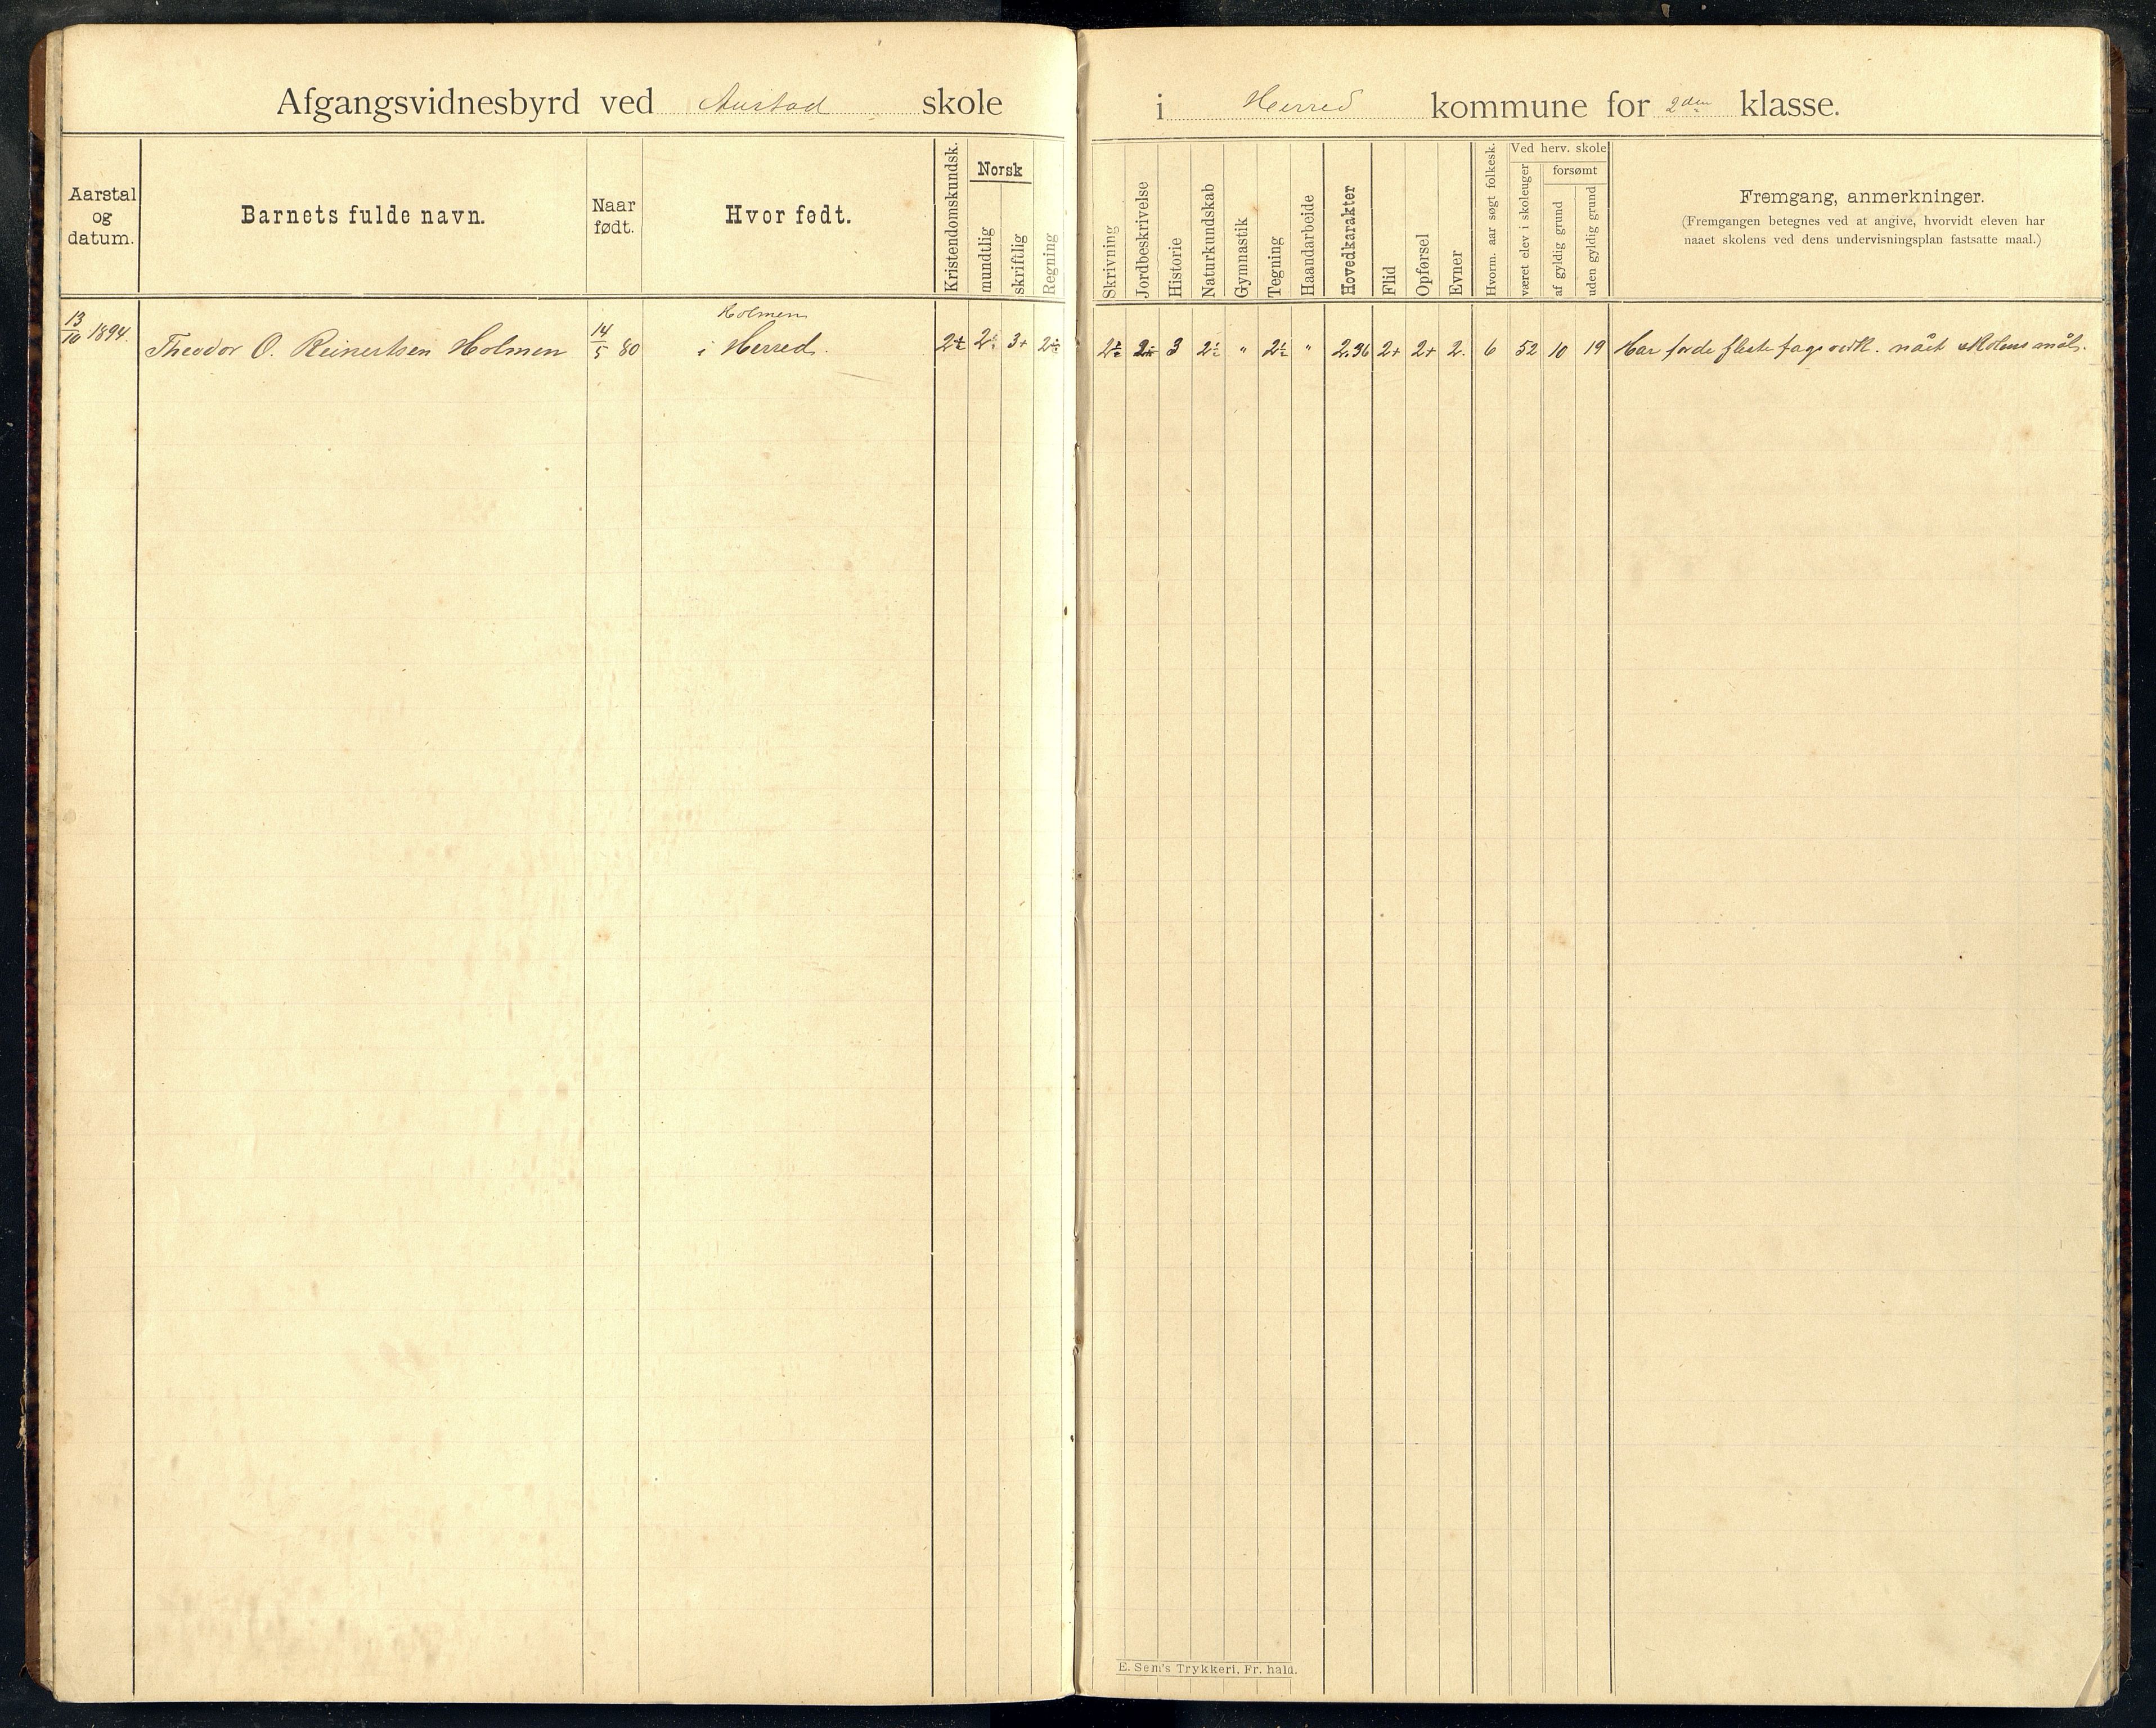 Afgangsvidnesbyrd ved Austad skole i Herred kommune for 2den klasse.
Aarstal og datum.
Barnets fulde navn.
Naar født.
Hvor født.
Kristendomskundsk.
Norsk
mundtlig
skriftlig
Regning
Skrivning
Jordbeskrivelse
Historie
Naturkundskab
Gymnastik
Tegning
Haandarbeide
Hovedkarakter
Flid
Opførsel
Evner
Hvorm. aar søgt folkesk.
Ved herv. skole
været elev i skoleuger
forsømt
af gyldig grund
uden gyldig grund
Fremgang, anmerkninger.
(Fremgangen betegnes ved at angive, hvorvidt eleven har
naaet skolens ved dens undervisningsplan fastsatte maal.)
Holmen
13/10 1894. Theodor O. Reinertsen Holmen 14/5 80 i Herred. 2÷ 2÷ 3+ 2÷ 2÷ 2÷ 3 2÷ " 2÷ " 2,36 2+ 2+ 2. 6 52 10 19 Har for de fleste fags vedk. nået skolens mål.
E. Sem's Trykkeri, Fr. hald.